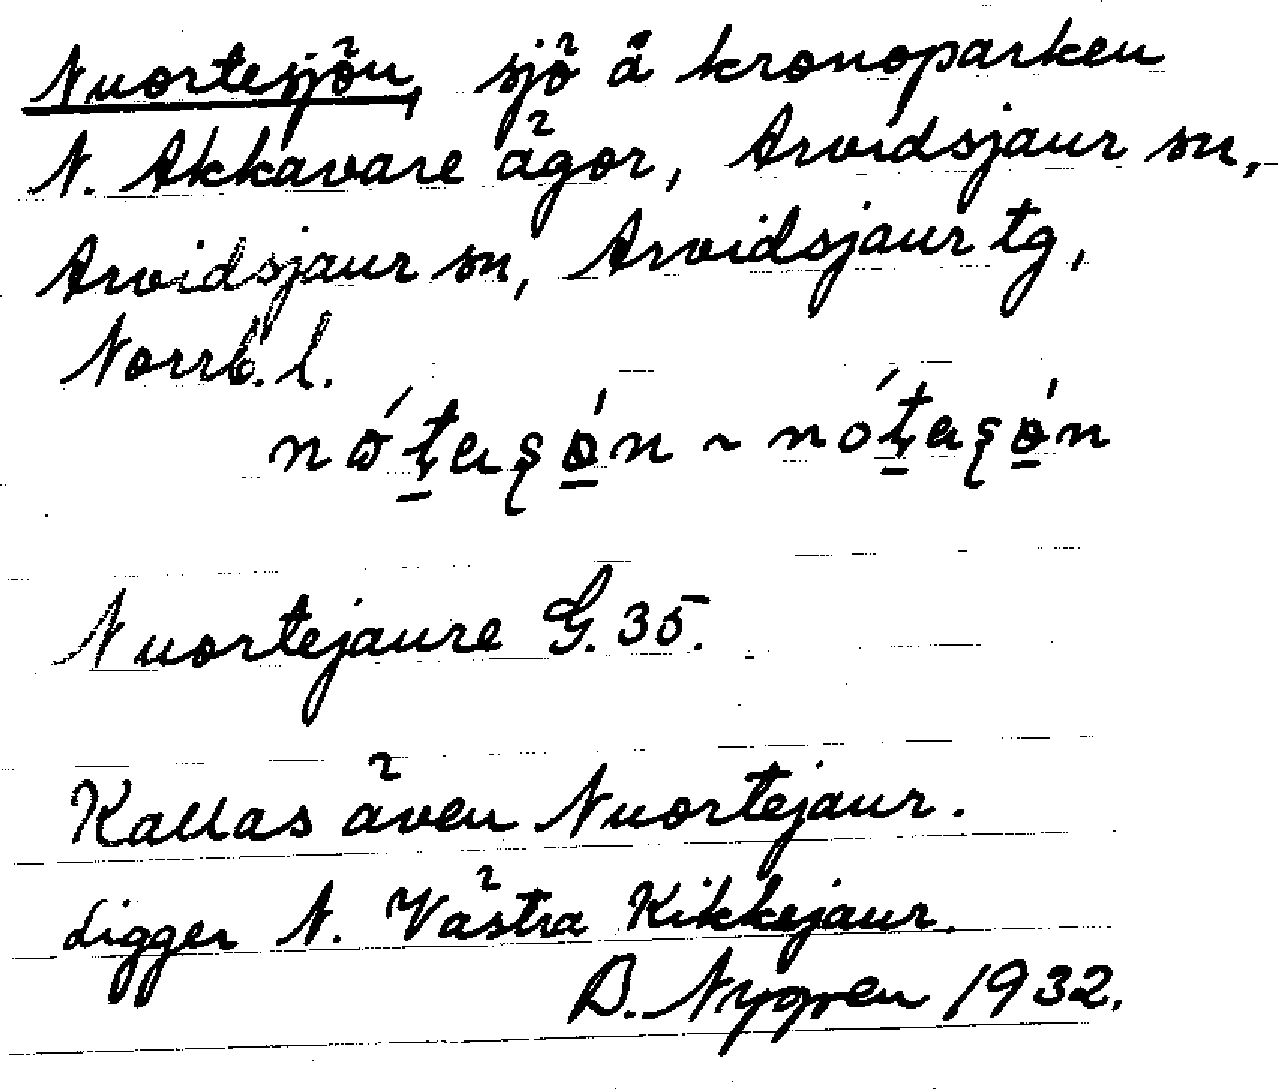 Nuortesjön, sjö å kronoparken
N. Akkavare ägor, Arvidsjaur sn,
Arvidsjaur sn, Arvidsjaur tg,
Norrb. l.
Nuortejaure G. 35.
Kallas även Nuortejaur.
Ligger N. Västra Kikkejaur.
B. Nygren 1932.